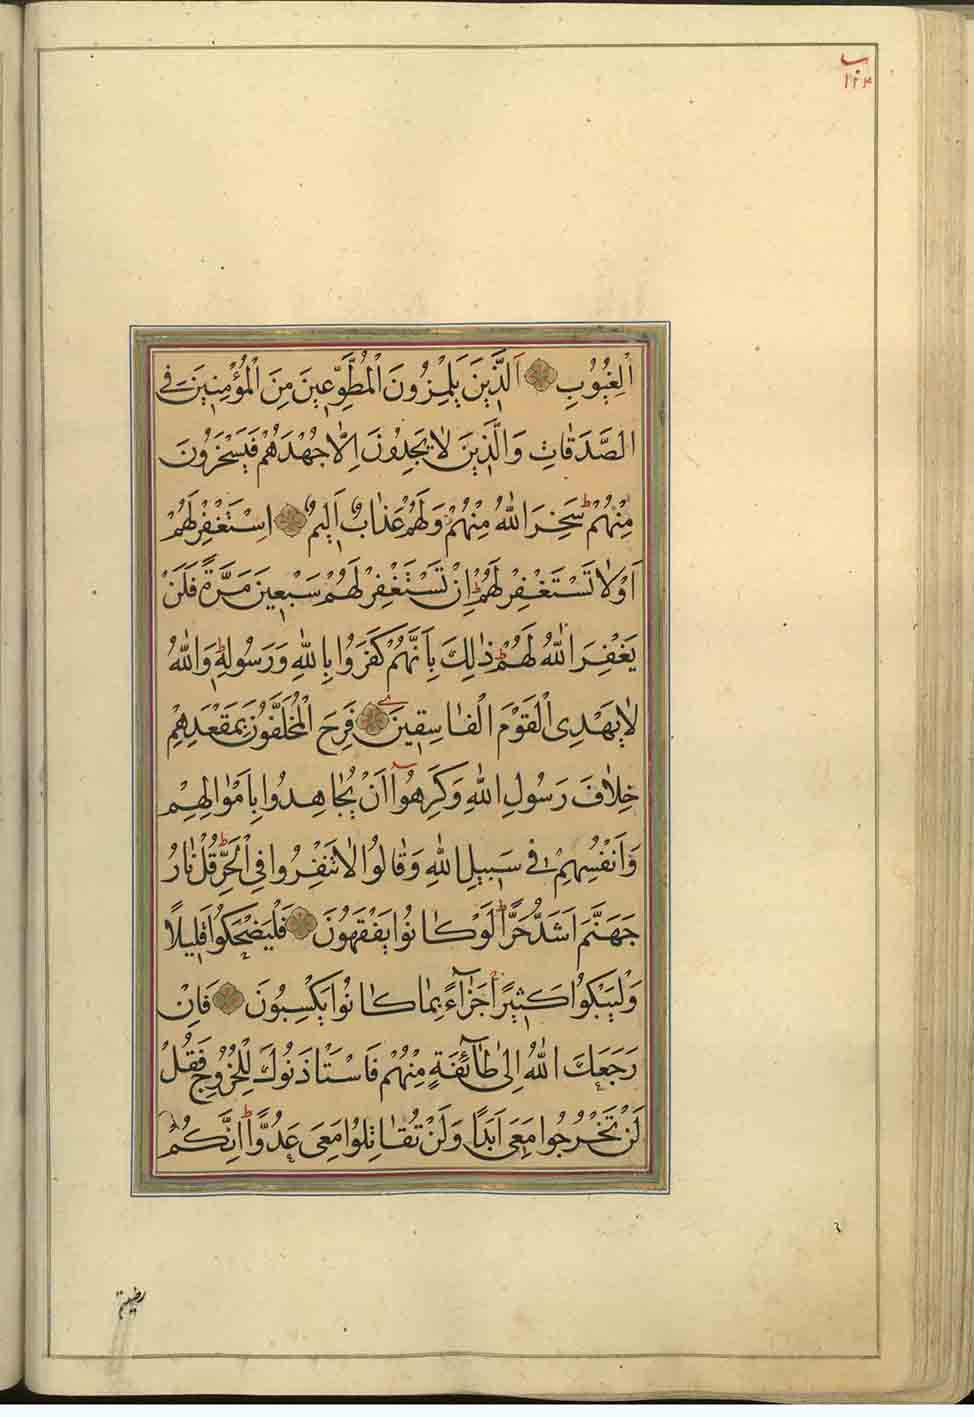 ب
١٢٤
الْغُيُوبِ اَلَّذٖينَ يَلْمِزُونَ الْمُطَّوِّعٖينَ مِنَ الْمُؤْمِنٖينَ فِى
الصَّدَقَاتِ وَالَّذٖينَ لَا يَجِدُونَ اِلَّا جُهْدَهُمْ فَيَسْخَرُونَ
مِنْهُمْ سَخِرَ اللّٰهُ مِنْهُمْ وَلَهُمْ عَذَابٌ اَلٖيمٌ اِسْتَغْفِرْ لَهُمْ
اَوْ لَا تَسْتَغْفِرْ لَهُمْ اِنْ تَسْتَغْفِرْ لَهُمْ سَبْعٖينَ مَرَّةً فَلَنْ
يَغْفِرَ اللّٰهُ لَهُمْ ذٰلِكَ بِاَنَّهُمْ كَفَرُوا بِاللّٰهِ وَرَسُولِهٖ وَاللّٰهُ
لَا يَهْدِى الْقَوْمَ الْفَاسِقٖينَ فَرِحَ الْمُخَلَّفُونَ بِمَقْعَدِهِمْ
خِلَافَ رَسُولِ اللّٰهِ وَكَرِهُوٓا اَنْ يُجَاهِدُوا بِاَمْوَالِهِمْ
وَاَنْفُسِهِمْ فٖى سَبٖيلِ اللّٰهِ وَقَالُوا لَا تَنْفِرُوا فِى الْحَرِّ قُلْ نَارُ
جَهَنَّمَ اَشَدُّ حَرًّا لَوْ كَانُوا يَفْقَهُونَ فَلْيَضْحَكُوا قَلٖيلًا
وَلْيَبْكُوا كَثٖيرًا جَزَٓاءً بِمَا كَانُوا يَكْسِبُونَ فَاِنْ
رَجَعَكَ اللّٰهُ اِلٰى طَٓائِفَةٍ مِنْهُمْ فَاسْتَاْذَنُوكَ لِلْخُرُوجِ فَقُلْ
لَنْ تَخْرُجُوا مَعِىَ اَبَدًا وَلَنْ تُقَاتِلُوا مَعِىَ عَدُوًّا اِنَّكُمْ